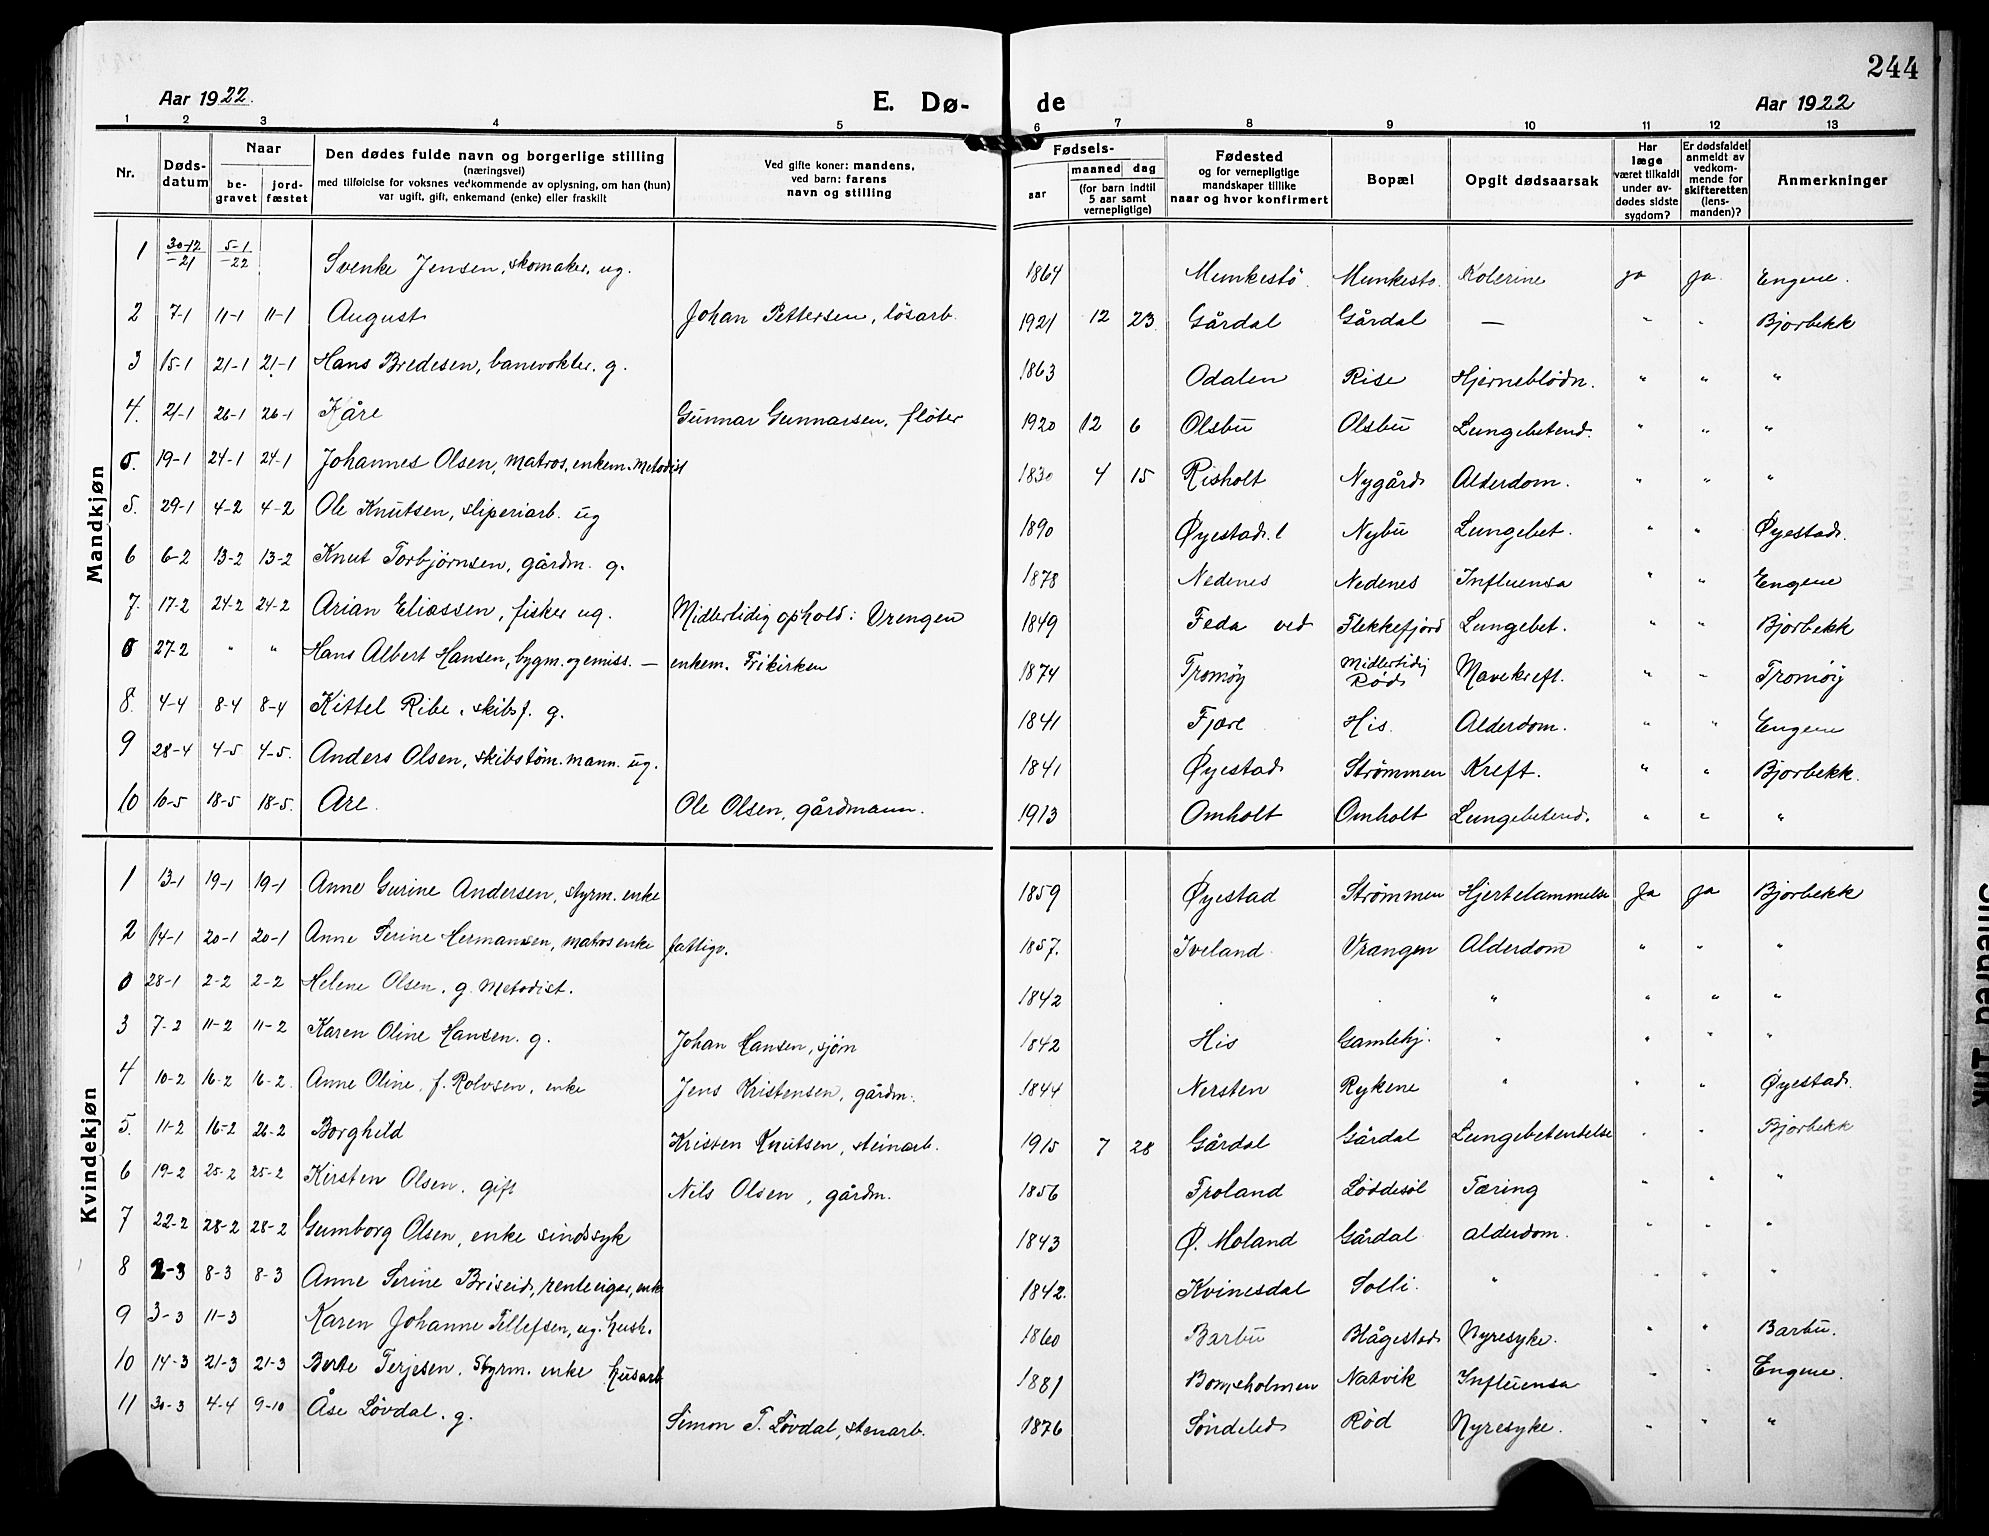 244
Aar 1922. E. Dø- de Aar 1922
1 2 3 4 5 6 7 8 9 10 11 12 13
Nr. Dødsdatum Naar begravet jordfæstet
Den dødes fulde navn og borgerlige stilling (næringsvei) med tilføielse for voksnes vedkommende av oplysning, om han (hun) var ugift, gift, enkemand (enke) eller fraskilt
Ved gifte koner: mandens, ved barn: farens navn og stilling
Fødsels- aar maaned dag (for barn indtil 5 aar samt vernepligtige)
Fødested og for vernepligtige mandskaper tillike naar og hvor konfirmert
Bopæl
Opgit dødsaarsak
Har læge været tilkaldt under avdødes sidste sygdom?
Er dødsfaldet anmeldt av vedkommende for skifteretten (lensmanden)?
Anmerkninger
Mandkjøn
1 30-12 -21 5-1 -22 Svenke Jensen, skomaker, ug. 1864 Munkestø Munkestø Kolerine ja ja Engene.
2 7-1 11-1 11-1 August Johan Pettersen, løsarb. 1921 12 23 Gårdal Gårdal — " " Bjorbekk
3 15-1 21-1 21-1 Hans Bredesen, banevokter. g. 1863 Odalen Rise Hjerneblødn. " " "
4. 21-1 26-1 26-1 Kåre Gunnar Gunnarsen, fløter 1920 12 6 Olsbu Olsbu Lungebetend. " " "
0. 19-1 24-1 24-1 Johannes Olsen, matros, enkem. Metodist 1830 4 15 Risholt Nygård Alderdom. " " "
5. 29-1 4-2 4-2 Ole Knutsen, sliperiarb. ug 1890 Øyestad. Nybu Lungebet. " " Øyestad.
6 6-2 13-2 13-2 Knut Torbjørnsen, gårdm. g. 1878 Nedenes Nedenes Influensa " " Engene
7. 17-2 24-2 24-2 Arian Eliassen, fisker ug. Midlertidig ophold: Vrengen 1849 Feda ved Flekkefjord Lungebet. " " Bjorbekk
0 27-2 " " Hans Albert Hansen, bygm. og emiss. — enkem. Frikirken 1874 Tromøy Midlertidig Rød Mavekreft. " " Tromøy
8. 4-4 8-4 8-4 Kittel Ribe, skibsf. g. 1841 Fjære His. Alderdom. " " Engene
9 28-4 4-5 4-5. Anders Olsen, skibstøm. mann. ug. 1841 Øyestad Strømmen Kreft. " " Bjorbekk.
10 10-5 18-5 18-5. Are. Ole Olsen, gårdmann. 1913 Omholt Omholt Lungebetend. " " "
Kvindekjøn
1 13-1 19-1 19-1 Anne Gurine Andersen, styrm. enke 1859 Øyestad Strømmen Hjertelammelse ja ja Bjorbekk
2 14-1 20-1 20-1 Anne Serine Hermansen, matros enke fattigv. 1857. Iveland Vrangen Alderdom " " "
0 28-1 2-2 2-2 Helene Olsen. g. Metodist. 1842 . . " " " "
3 7-2 11-2 11-2 Karen Oline Hansen. g. Johan Hansen, sjøm 1842 His Gamlehj. " " " "
4 10-2 16-2 16-2. Anne Oline, f. Rolvsen, enke Jens Kristensen, gårdm. 1844 Nersten Rykene " " " Øyestad.
5. 11-2 16-2 26-2 Borghild Kristen Knutsen, steinarb. 1915 7 28 Gårdal Gårdal Lungebetendelse " " Bjorbekk
6 19-2 25-2 25-2 Kirsten Olsen, gift Nils Olsen, gårdm. 1856 Froland Løddesøl Tæring " " "
7 22-2 28-2 28-2 Gumborg Olsen, enke sindssyk 1843 Ø. Moland Gårdal alderdom. " " "
8 2-3 8-3 8-3 Anne Serine Briseid, renteeigar, enke 1842. Kvinesdal Solli. " " " "
9 3-3 11-3 Karen Johanne Tellefsen, ug. hush. 1860 Barbu Blågestad Nyresyke. " " Barbu.
10 14-3 21-3 21-3 Berte Terjesen. Styrm. enke husarb 1881 Natvik Influensa " " Engene.
11 30-3 4-4 9-10 Åse Løvdal. g. Simon T. Løvdal, stenarb. 1876 Søndeled Rød Nyresyke. " " "